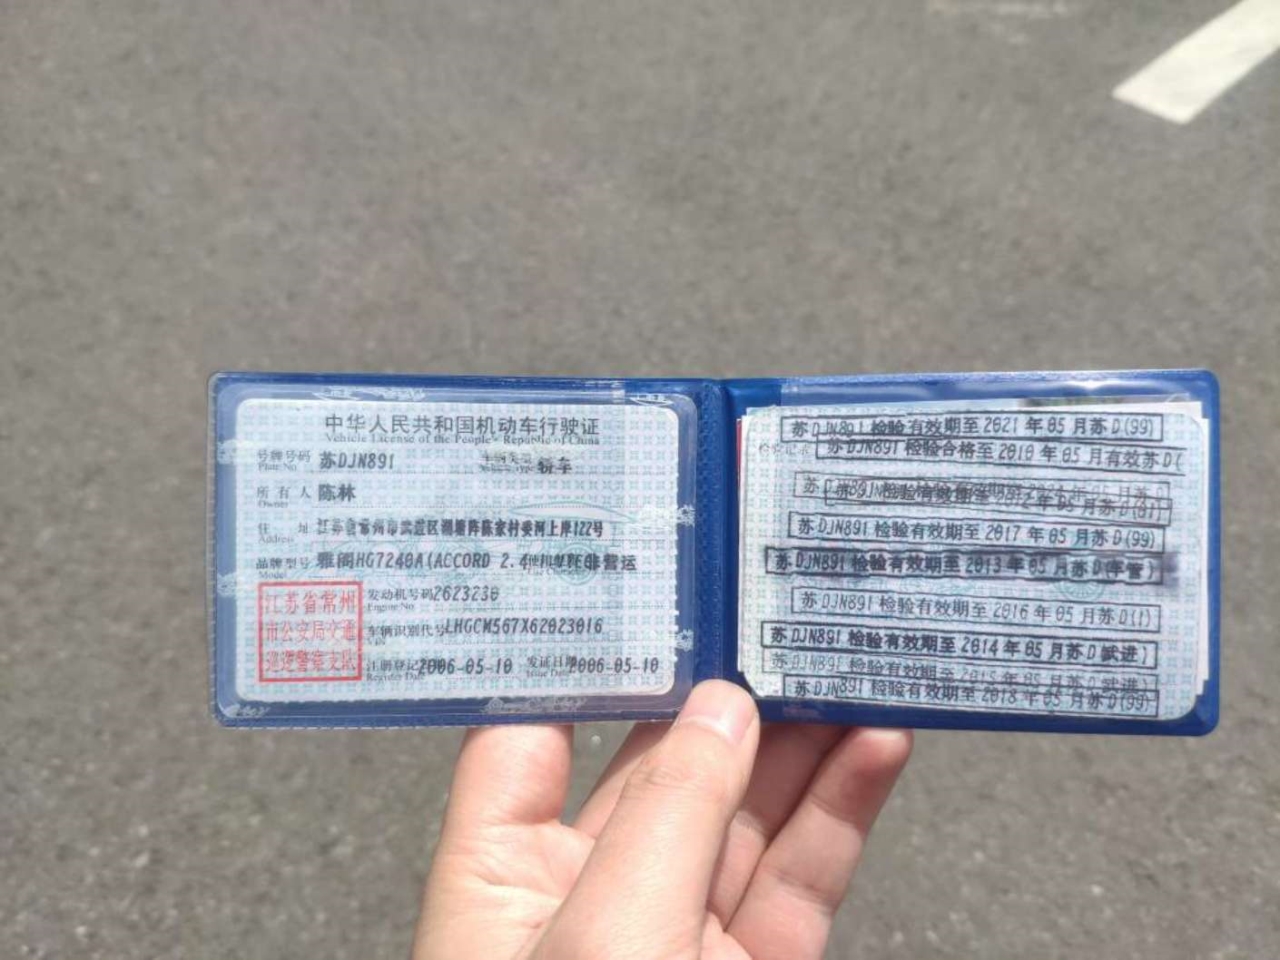 中华人民共和国机动车行驶证
Vehicle License of the People's Republic of China
号牌号码 苏DJN891 轿车
Plate No.
所有人 陈林
Owner
住址 江苏省常州市武进区湖塘 陈家村委河上岸122号
Address
品牌型号 雅阁HG7240A(ACCORD 2.4 非营运
Model
发动机号码 2623230
Engine No
车辆识别代号 LHGCM567X62023016
注册登记 2006-05-10 发证日期 2006-05-10
Register Date Issue Date
江苏省常州
市公安局交通
巡逻警察支队
苏DJN891 检验有效期至 2021 年 05 月苏D(99)
苏DJN891 检验合格至 2010 年 05 月有效苏D(
检验有效期至 年 05 月苏D(01)
苏DJN891 检验有效期至 2017 年 05 月苏D(99)
苏DJN891 检验有效期至 2013 年 05 月苏D(车管)
苏DJN891 检验有效期至 2016 年 05 月苏D(1)
苏DJN891 检验有效期至 2014 年 05 月苏D(武进)
苏DJN891 检验有效期至 2015 年 05 月苏D(武进)
苏DJN891 检验有效期至 2018 年 05 月苏D(99)